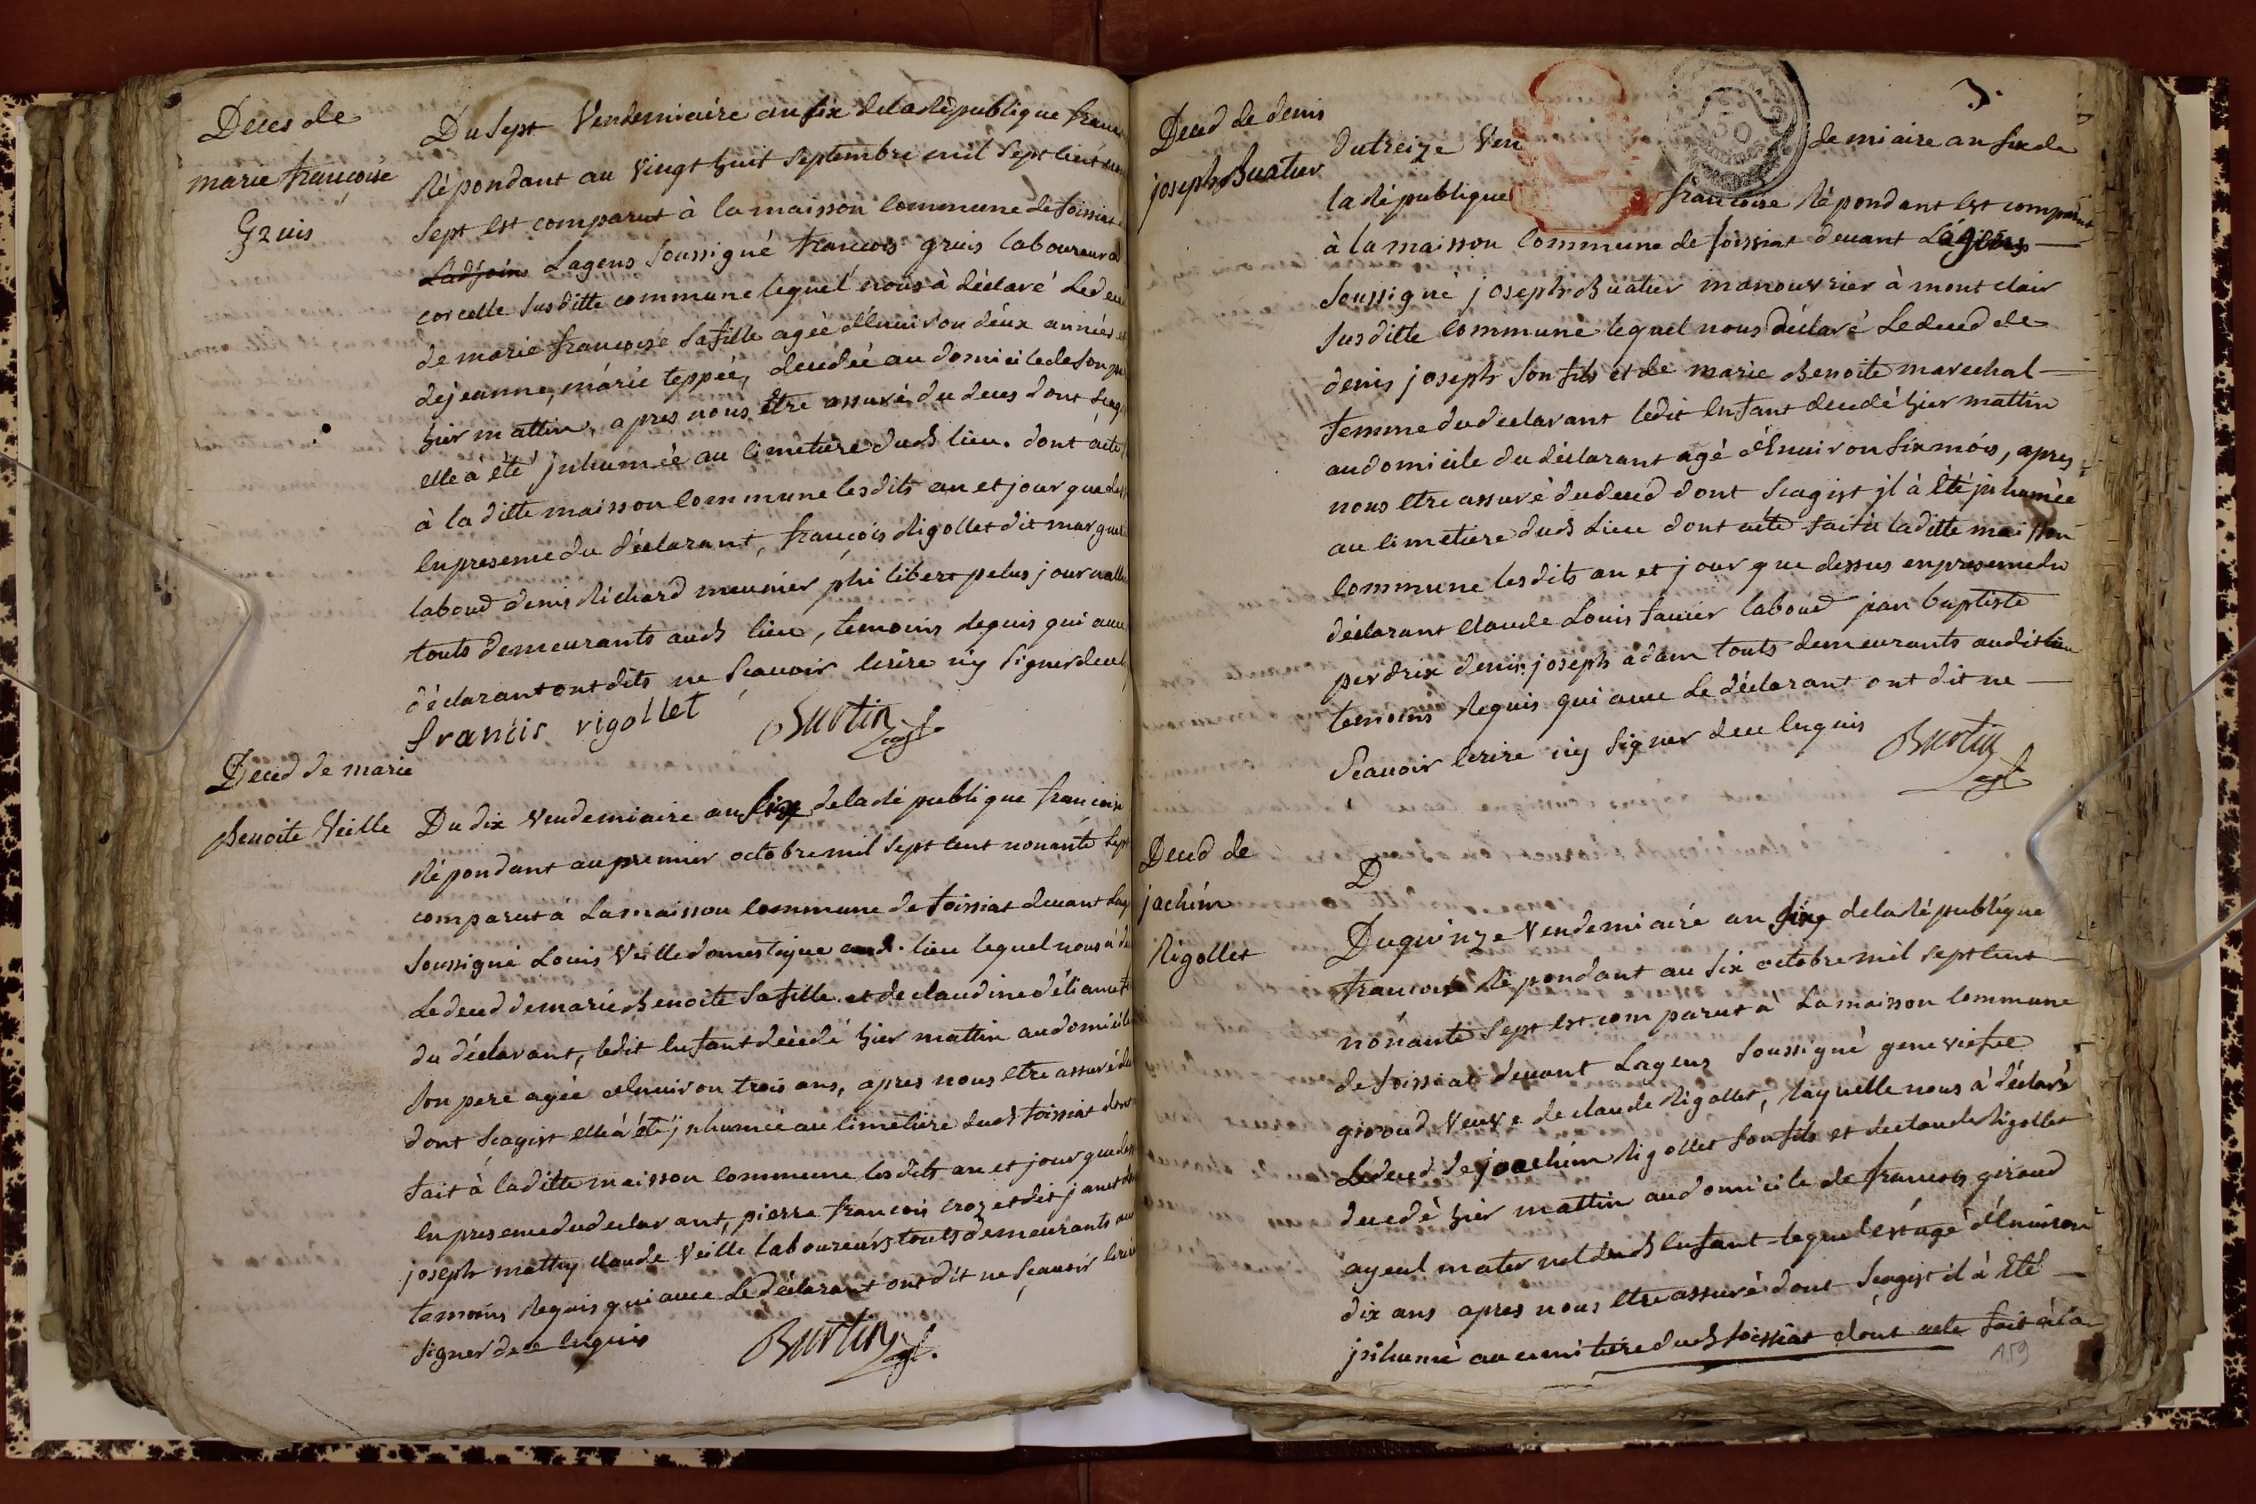 Deces de
marie françoise
Gruis
Du sept Vendemiaire an six de la République
Répondant au Vingt huit Septembre mil sept cent
Sept est comparut à la maison Commune de foissiat
Ladjoin Lagens Soussigné francois gruis laboureur a
corcelle susditte commune lequel nous à déclaré Le
de marie francoise sa fille agée d'Environ deux années
de jeanne, marie teppée, decedée au domicile de son
hier mattin, apres nous Etre assuré du deces dont
elle à été jnhumée au Cimetiere dud lieu. dont acte
à la ditte maison Commune lesdits an et jour que
En presence du declarant, francois Rigollet dit
laboud denis Richard meunier philibert pelus
touts demeurants aud lieu, temoins requis qui
déclarant ont dits ne Scauoir Ecrire ny Signer
francis rigollet Burtin agt
Deced de marie
Benoite Veille
Du dix Vendemiaire an six de la Republique francoise
Répondant au premier octobre mil sept cent nonante Sept
comparut à La maison Commune de foissiat deuant
Soussigné Louis Veille domestique aud. lieu lequel nous à
Le deced de marie Benoite sa fille et de claudine
du déclarant, ledit Enfant décedé hier mattin au domicile
Son pere agée d'Environ trois ans, apres nous Etre assuré
dont Seagist elle à été jnhumée au Cimetiere dud foissiat dont
fait à la ditte maison Commune les dits an et jour que
En presence du declarant, pierre francois croz et dit
joseph mathy claude Veille laboureurs touts demeurants
temoins Requis qui auec Le déclarant ont dit ne Scauoir Ecrire
Signer de ce Enquis
Burtin agt.
Deced de denis
joseph Buatier
3.
du treize Vendemiaire an six de
la Republique francoise Répondant est comparut
à la maison Commune de foissiat deuant Lagens
Soussigné joseph Buatier manouvrier à mont clair
Susditte Commune lequel nous déclaré Le deced de
denis joseph Son fils et de marie Benoite marechal
femme du declarant ledit Enfant decedé hier mattin
au domicile du déclarant agé d'Enuiron six mois, apres
nous Etre assuré du deced dont Seagist jl à Eté jnhumée
au Cimetiere dud Lieu dont acte fait à la ditte maison
Commune les dits an et jour que dessus en presence du
déclarant claude Louis fauier laboud jean baptiste
perdrix denis joseph adam touts demeurants audit lieu
temoins Requis qui auec Le déclarant ont dit ne
Scauoir Ecrire ny Signer de ce Enquis
Burtin
agt
Deced de
jachim
Rigollet
D
Du quinze Vendemiaire an six de la République
francoise Répondant au six octobre mil sept Cent
nonante Sept est comparut à La maison Commune
de foissiat deuant Lagens Soussigné genevieve
giroud Veuve de claude Rigollet, laquelle nous à déclaré
Le deced de joachim Rigollet Son fils et de claude Rigollet
decedé hier mattin au domicile de francois giroud
ayeul maternel dud Enfant lequel est agé d'Enuiron
dix ans apres nous Etre assuré dont Seagist il à Eté
jnhumé au cimitiere dud foissiat dont acte fait à la
159